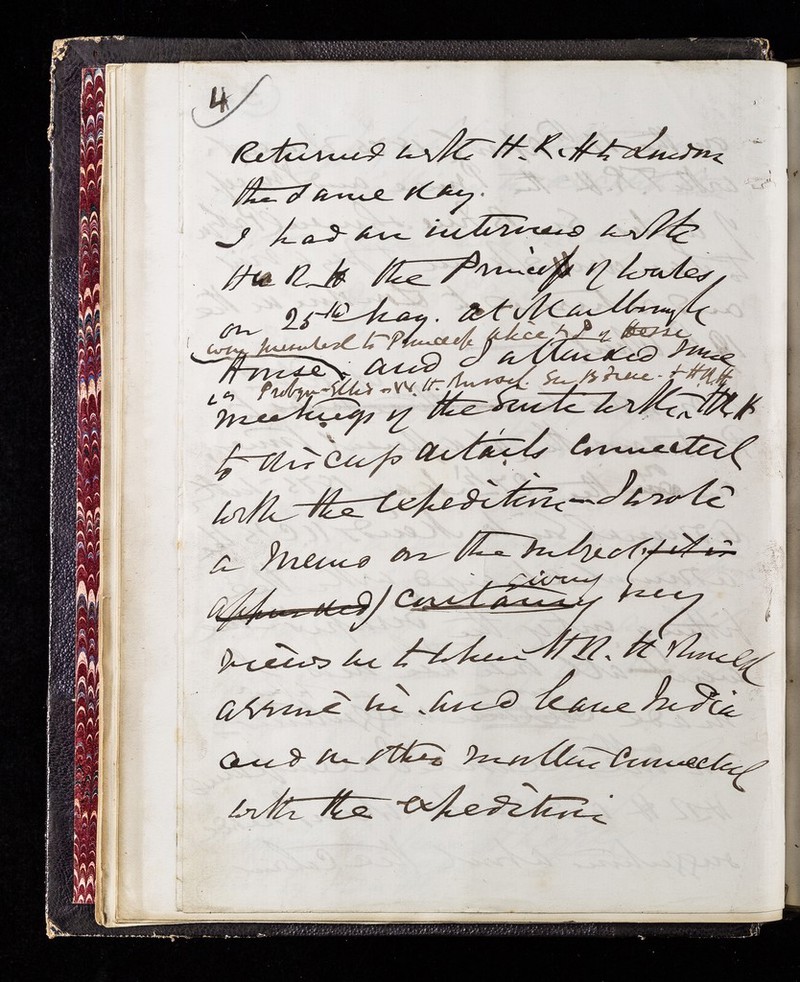 4
Returned with H. R. H to London
the same day.
I had an interview with
H R. H the Princess of Wales
on 25th May. at Marlborough
was presented to Princess Alice of Hesse
House. and I attended some
Probyn - Ellis - W. H. Russell Sir B Frere - & HRH
meetings of the Suite with HRH
to discuss details connected
with the expedition - I wrote
a memo on the subject (it is
appended) containing giving my
views as to when H R. H should
arrive in and leave India
and on other matters connected
with the expedition